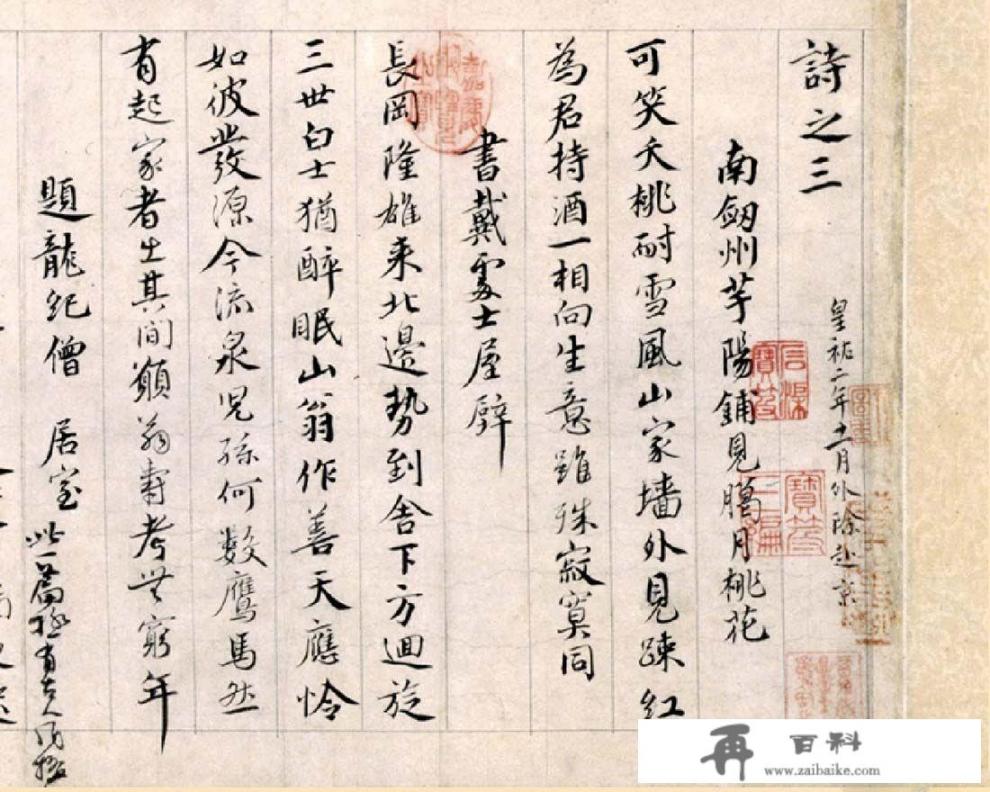 詩之三
皇祐二年十一月外除赴京
南劒州芋陽鋪見臈月桃花
可笑夭桃耐雪風山家墻外見踈紅
為君持酒一相向生意雖殊寂寞同
書戴處士屋壁
長岡隆雄來北邊勢到舍下方迴旋
三世白士猶醉眠山翁作善天應憐
如彼發源今流泉兒孫何數鷹馬然
有起家者出其間願翁壽考無窮年
題龍紀僧居室
此一篇極有古人風格
再百科
www.zaibaike.com